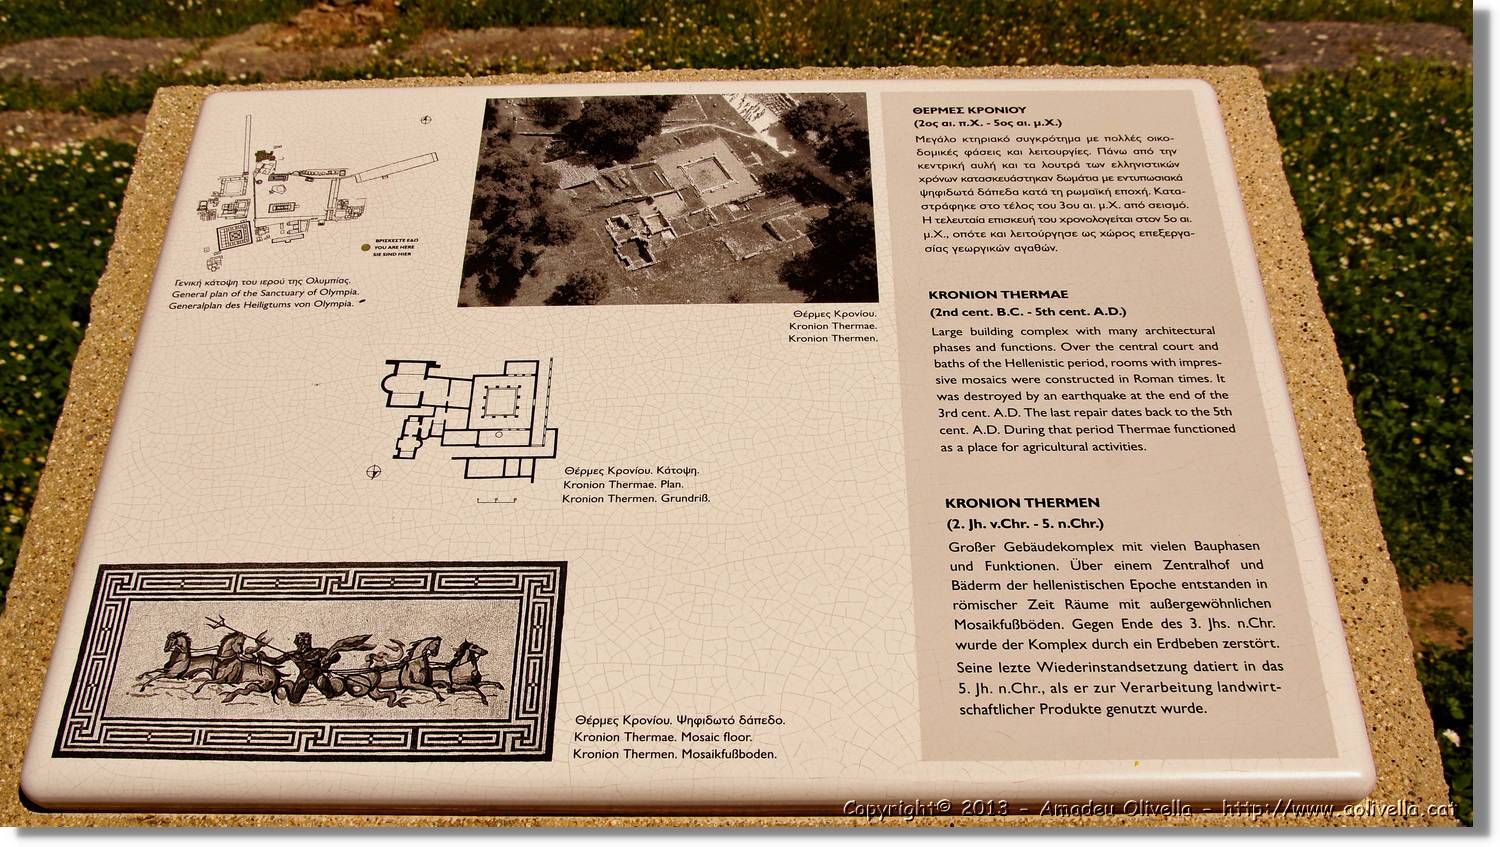 ΒΡΙΣΚΕΣΤΕ ΕΔΩ
YOU ARE HERE
SIE SIND HIER
Γενική κάτοψη του ιερού της Ολυμπίας.
General plan of the Sanctuary of Olympia.
Generalplan des Heiligtums von Olympia.
Θέρμες Κρονίου.
Kronion Thermae.
Kronion Thermen.
Θέρμες Κρονίου. Κάτοψη.
Kronion Thermae. Plan.
Kronion Thermen. Grundriß.
Θέρμες Κρονίου. Ψηφιδωτό δάπεδο.
Kronion Thermae. Mosaic floor.
Kronion Thermen. Mosaikfußboden.
ΘΕΡΜΕΣ ΚΡΟΝΙΟΥ
(2ος αι. π.Χ. - 5ος αι. μ.Χ.)
Μεγάλο κτηριακό συγκρότημα με πολλές οικο-
δομικές φάσεις και λειτουργίες. Πάνω από την
κεντρική αυλή και τα λουτρά των ελληνιστικών
χρόνων κατασκευάστηκαν δωμάτια με εντυπωσιακά
ψηφιδωτά δάπεδα κατά τη ρωμαϊκή εποχή. Κατα-
στράφηκε στο τέλος του 3ου αι. μ.Χ. από σεισμό.
Η τελευταία επισκευή του χρονολογείται στον 5ο αι.
μ.Χ., οπότε και λειτούργησε ως χώρος επεξεργα-
σίας γεωργικών αγαθών.
KRONION THERMAE
(2nd cent. B.C. - 5th cent. A.D.)
Large building complex with many architectural
phases and functions. Over the central court and
baths of the Hellenistic period, rooms with impres-
sive mosaics were constructed in Roman times. It
was destroyed by an earthquake at the end of the
3rd cent. A.D. The last repair dates back to the 5th
cent. A.D. During that period Thermae functioned
as a place for agricultural activities.
KRONION THERMEN
(2. Jh. v.Chr. - 5. n.Chr.)
Großer Gebäudekomplex mit vielen Bauphasen
und Funktionen. Über einem Zentralhof und
Bäderm der hellenistischen Epoche entstanden in
römischer Zeit Räume mit außergewöhnlichen
Mosaikfußböden. Gegen Ende des 3. Jhs. n.Chr.
wurde der Komplex durch ein Erdbeben zerstört.
Seine lezte Wiederinstandsetzung datiert in das
5. Jh. n.Chr., als er zur Verarbeitung landwirt-
schaftlicher Produkte genutzt wurde.
Copyright© 2013 - Amadeu Olivella - http://www.aolivella.cat